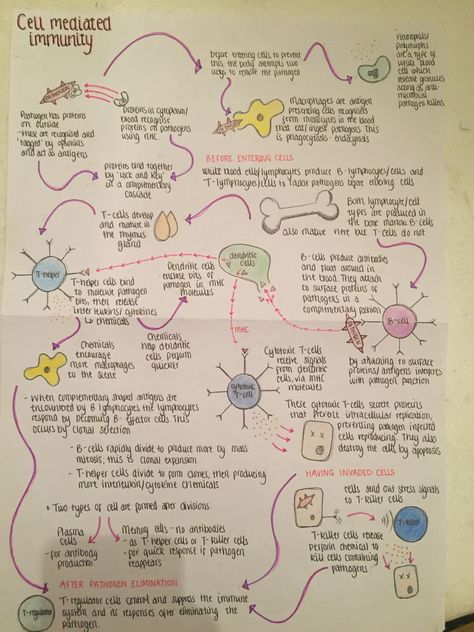 Cell mediated
immunity
before entering cells, to prevent
this, the body attempts two
ways to remove the pathogen
neutrophils/
polymorphs
are a type of
white blood
cell which
release granules
acting as anti-
microbial
pathogen killers
PATHOGEN
Pathogen has proteins
on outside
- these are recognised and
'tagged' by opsonins
and act as antigens
proteins in cytoplasm/
blood recognise
proteins on pathogens
using MHC.
Macrophages are antigen
presenting cells recognised
from monocytes in the blood
that eat/ingest pathogens. This
is phagocytosis - endocytosis
proteins bind together
by 'lock and key'
in a complementary
cascade
BEFORE ENTERING CELLS
white blood cells/lymphocytes produce B-lymphocytes/cells and
T-lymphocytes/cells to remove pathogens before entering cells
T-cells develop
and mature in
the thymus
gland
Both lymphocyte/cell
types are produced in
the bone marrow. B-cells
also mature here but T-cells do not
T-helper
T-helper cells bind
to molecule pathogen
bits, then release
interleukins/cytokines
↳ chemicals
Dendritic cells
enclose bits of
pathogen in MHC
molecules
dendritic
cells
B-cells produce antibodies
and float around in
the blood. They attach
to surface proteins of
pathogens in a
complementary pattern
B-cell
PATHOGEN
MHC
Chemicals
encourage
more macrophages
to the scene
Chemicals
help dendritic
cells perform
quicker
cytotoxic
T-cell
Cytotoxic T-cells
receive signals
from dendritic
cells, via MHC
molecules
by attaching to surface
proteins/antigens interferes
with pathogen function
- When complementary shaped antigens are
encountered by B lymphocytes the lymphocytes
respond by becoming B-effector cells. This
occurs by clonal selection
These cytotoxic T-cells secrete proteins
that prevent intracellular replication,
preventing pathogen infected
cells reproducing. They also
destroy the cells by apoptosis
- B-cells rapidly divide to produce more by mass
mitosis, this is clonal expansion
- T-helper cells divide to form clones, then producing
more interleukin/cytokine chemicals
HAVING INVADED CELLS
cells send out stress signals
to T-killer cells
• Two types of cell are formed after divisions:
Plasma
cells
- for antibody
production
Memory cells - no antibodies
- as T-helper cells or T-killer cells
- for quick response if pathogen
reappears
T-killer
T-killer cells release
perforin chemical to
kill cells containing
pathogens
AFTER PATHOGEN ELIMINATION
T-regulator
T-regulator cells control and suppress the immune
system and its responses after eliminating the
pathogen.